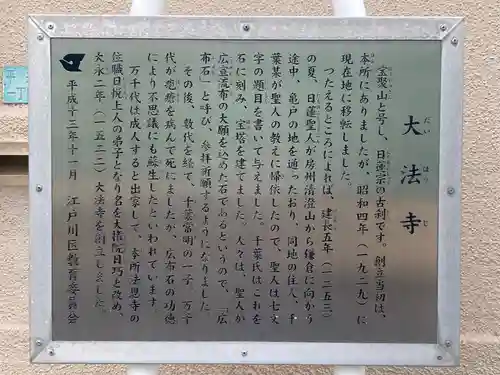 大法寺
だいほうじ
宝聚山と号し、日蓮宗の古刹です。創立当初は、
本所にありましたが、昭和四年（一九二九）に
現在地に移転しました。
つたえるところによれば、建長五年（一二五三）
の夏、日蓮聖人が房州清澄山から鎌倉に向かう
途中、亀戸の地を通ったおり、同地の住人、千
葉某が聖人の教えに帰依したので、聖人は七文
字の題目を書いて与えました。千葉氏はこれを
石に刻み、宝塔を建てました。人々は、聖人が
広宣流布の大願を込めた石であるというので、「広
布石」と呼び、参拝祈願するようになりました。
その後、数代を経て、千葉富明の一子、万千
代が瘧瘡を病んで死にましたが、広布石の功徳
により不思議にも蘇生したといわれています。
万千代は成人すると出家して、本所法恩寺の
住職日悦上人の弟子となり名を大椿院日巧と改め、
大永二年（一五二二）大法寺を創立しました。
平成十三年十一月　江戸川区教育委員会